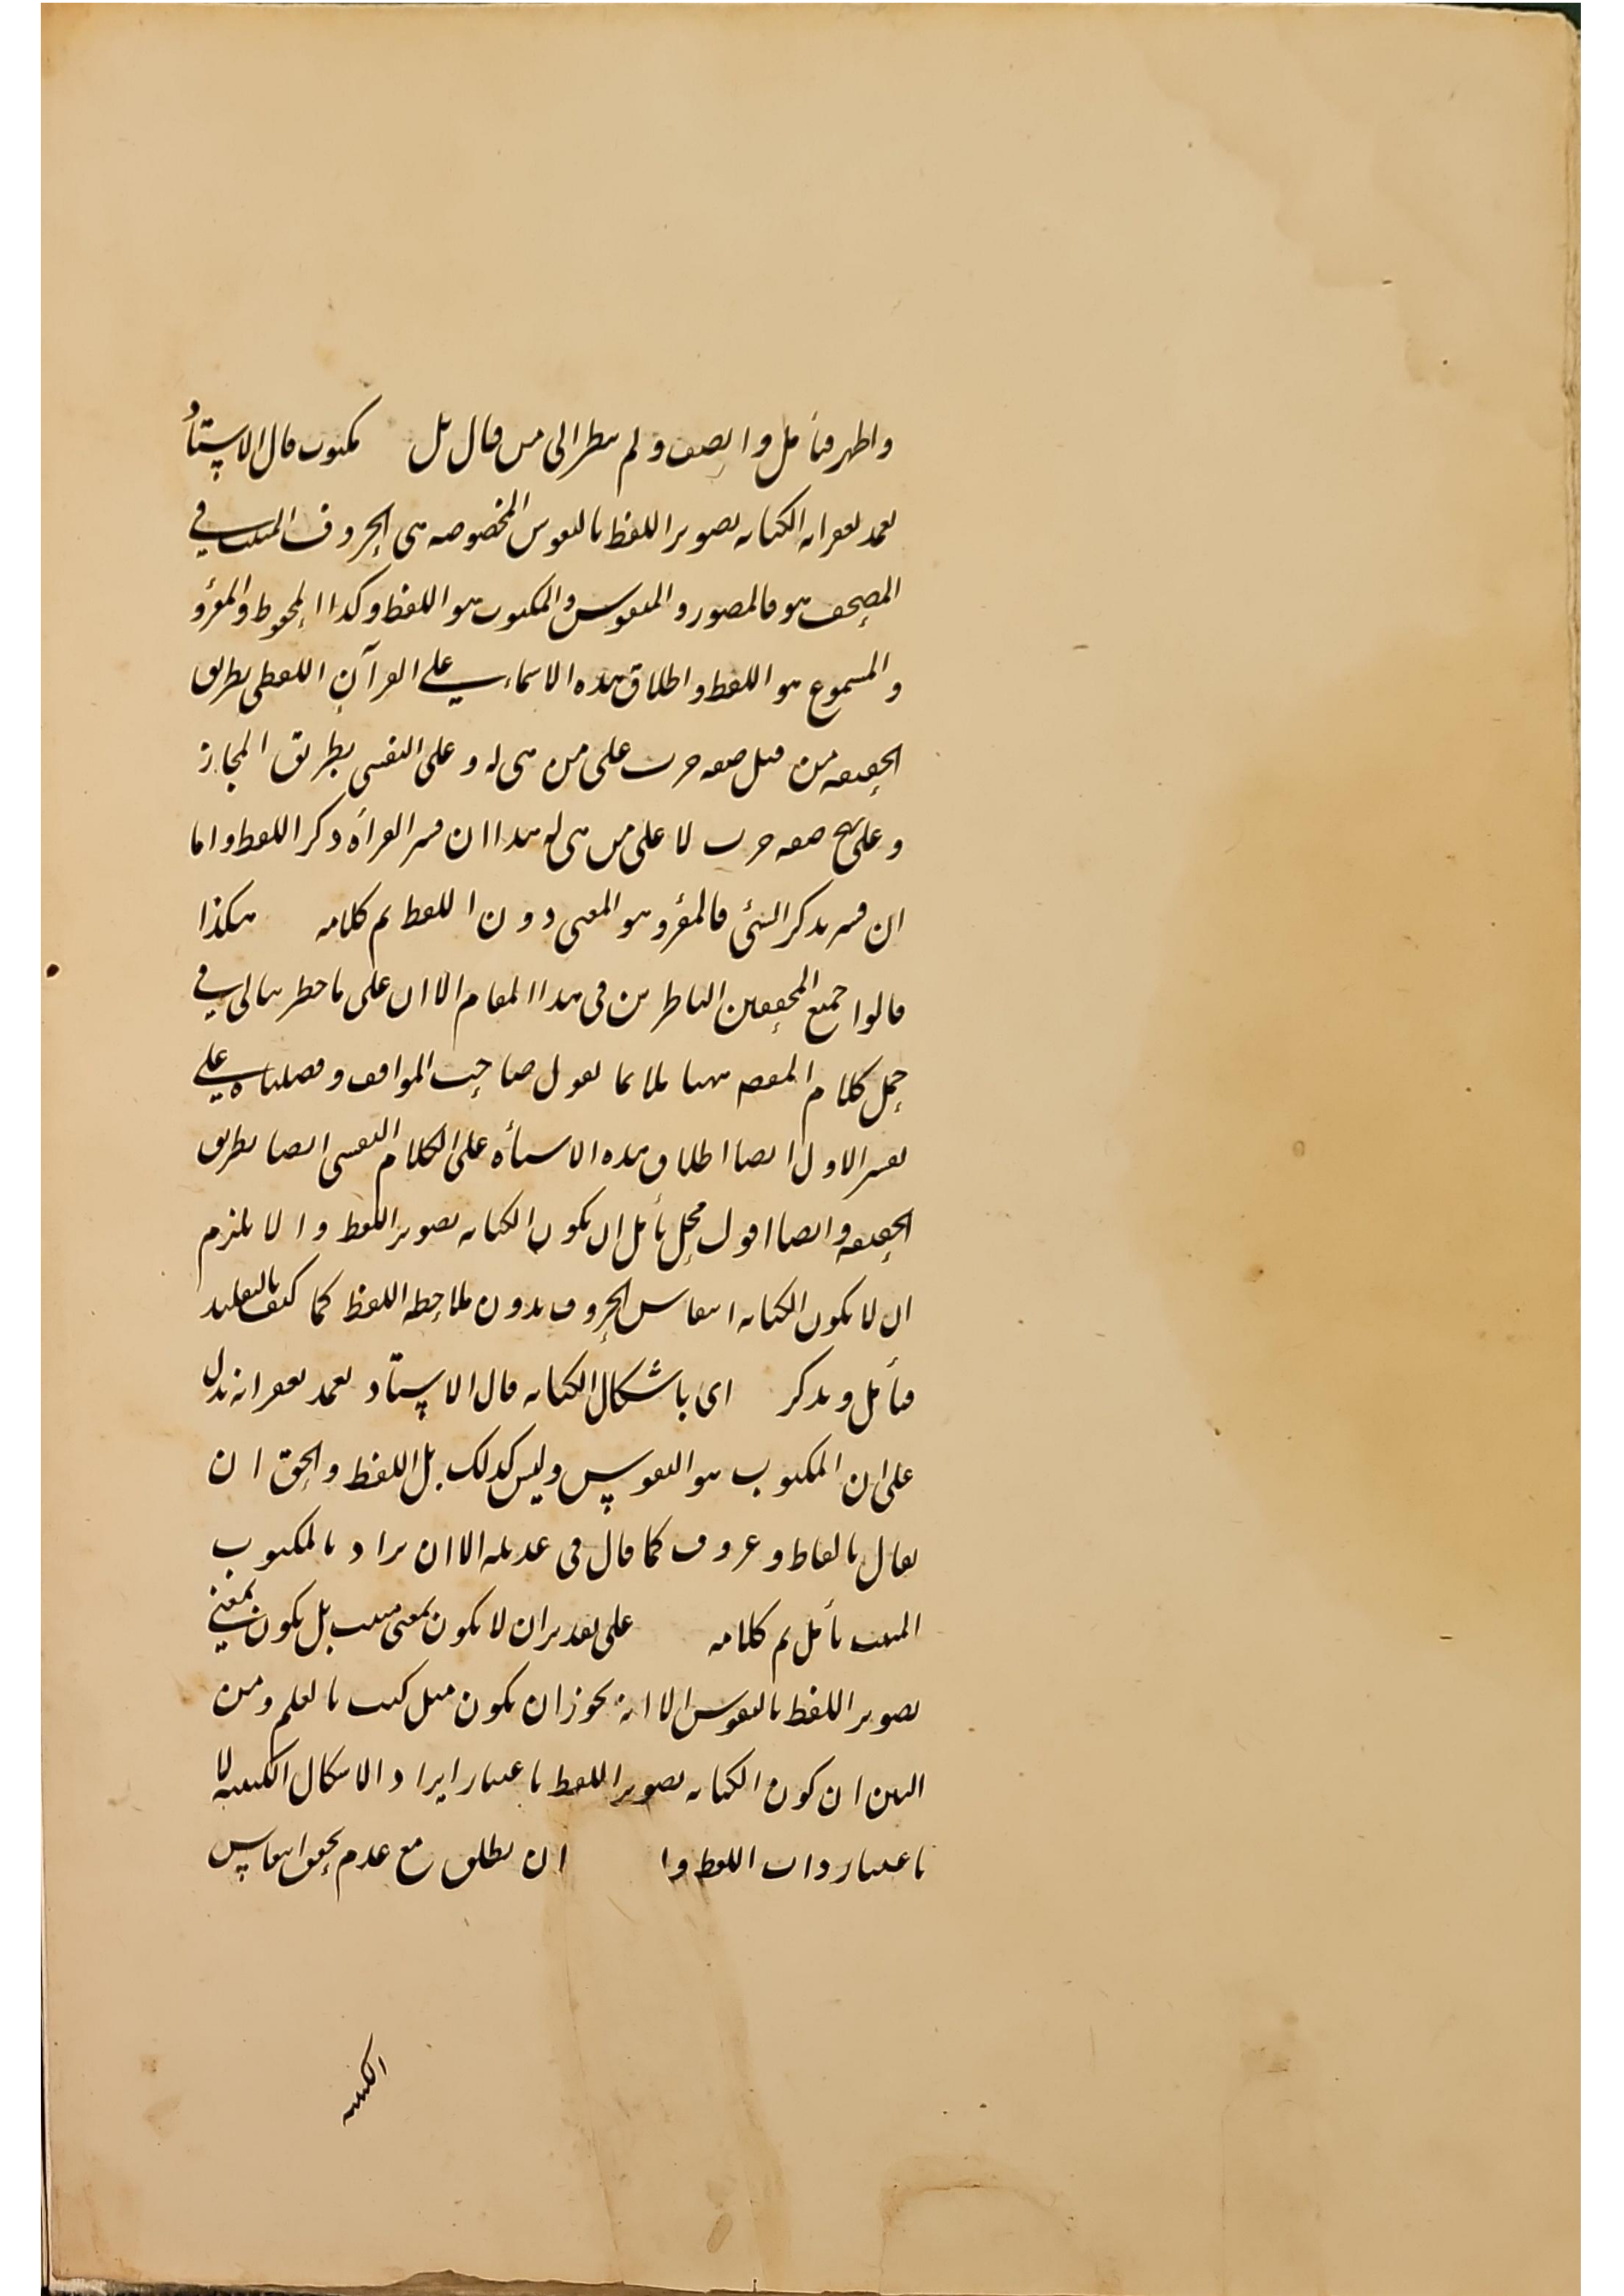 واظهر فتأمل وانصف ولم ينظر الى من قال بل مكتوب قال الاستاد
تغمد بغفرانه الكتابه تصوير اللفظ بالنقوس المخصوصه هى الحروف المثبت في
المصحف هو فالمصور والمنقوس والمكتوب هو اللفظ وكذا المحفوظ والمقرؤ
والمسموع هو اللفظ واطلاق هذه الاسماء على القرآن اللفظى بطريق
الحقيقه من قبيل صفه جرت على من هى له وعلى النفسى بطريق المجاز
وعلى نهج صفه جرت لا على من هى له هذا ان فسر القرأه ذكر اللفظ واما
ان فسر بذكر الشئ فالمقرؤ هو المعنى دون اللفظ تم كلامه هكذا
قالوا جميع المحققين الناظرين فى هذا المقام الا ان على ما خطر ببالى في
حمل كلام المصه ههنا ملائما لقول صاحب المواقف وفصلناه على
تفسير الاول ايضا اطلاق هذه الاسمأه على الكلام النفسى ايضا بطريق
الحقيقه وايضا اقول محل تأمل ان يكون الكتابه تصوير اللفظ والا يلزم
ان لا يكون الكتابه انتقاس الحروف بدون ملاحظه اللفظ كما كتب بالتقليد
فتأمل وتذكر اى باشكال الكتابه قال الاستاد تغمد بغفرانه يدل
على ان المكتوب هو النقوس وليس كذلك بل اللفظ والحق ان
يقال بالفاظ وحروف كما قال فى عديله الا ان يراد بالمكتوب
المثبت تأمل تم كلامه على تقدير ان لا يكون بمعنى مثبت بل يكون بمعنى
تصوير اللفظ بالنقوس الا انه يجوز ان يكون مثل كتب بالقلم ومن
البين ان كون الكتابه تصوير اللفظ باعتبار ايراد الاشكال الكتبيه لا
باعتبار ذات اللفظ وا ان يطلق مع عدم تحقق انتقاس
الكتبيه